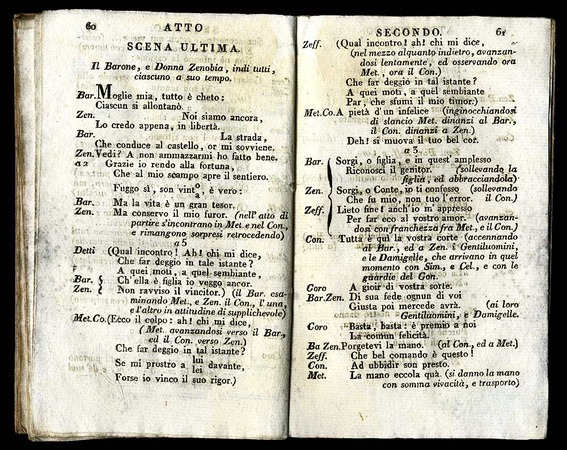 60 ATTO
SCENA ULTIMA.
Il Barone, e Donna Zenobia, indi tutti,
ciascuno a suo tempo.
Bar. Moglie mia, tutto è cheto:
Ciascun si allontanò.
Zen. Noi siamo ancora,
Lo credo appena, in libertà.
Bar. La strada,
Che conduce al castello, or mi sovviene.
Zen. Vedi? A non ammazzarmi ho fatto bene.
a 2 Grazie io rendo alla fortuna,
Che al mio scampo apre il sentiero.
Fuggo sì, son vinto/a, è vero:
Bar. Ma la vita è un gran tesor.
Zen. Ma conservo il mio furor. (nell'atto di
partire s'incontrano in Met. e nel Con.,
e rimangono sorpresi retrocedendo)
a 5
Detti (Qual incontro! Ah! chi mi dice,
Che far deggio in tale istante?
A quei moti, a quel sembiante,
Bar. Ch'ella è figlia io veggo ancor.
Zen. Non ravviso il vincitor.) (il Bar. esa-
minando Met., e Zen. il Con., l'una,
e l'altro in attitudine di supplichevole)
Met. Co. (Ecco il colpo: ah! chi mi dice,
(Met. avanzandosi verso il Bar.,
ed il Con. verso Zen.)
Che far deggio in tal istante?
Se mi prostro a lui/lei davante,
Forse io vinco il suo rigor.)
SECONDO. 61
Zeff. (Qual incontro! ah! chi mi dice,
(nel mezzo alquanto indietro, avanzan-
dosi lentamente, ed osservando ora
Met., ora il Con.)
Che far deggio in tal istante?
A quei moti, a quel sembiante
Par, che sfumi il mio timor.)
Met. Co. A pietà d'un infelice (inginocchiandosi
di slancio Met. dinanzi al Bar.,
il Con. dinanzi a Zen.)
Deh! si muova il tuo bel cor.
a 5
Bar. Sorgi, o figlia, e in quest' amplesso
Riconosci il genitor. (sollevando la
figlia, ed abbracciandola)
Zen. Sorgi, o Conte, io ti confesso (sollevando
Che fu mio, non tuo l'error. il Con.)
Zeff. Lieto fine! anch'io m'appresso
Per far eco al vostro amor. (avanzan-
dosi con franchezza fra Met., e il Con.)
Con. Tutta è quì la vostra corte (accennando
al Bar., ed a Zen. i Gentiluomini,
e le Damigelle, che arrivano in quel
momento con Sim., e Cel., e con le
guardie del Con.
Coro A gioir di vostra sorte.
Bar. Zen. Di sua fede ognun di voi
Giusta poi mercede avrà. (ai loro
Gentiluomini, e Damigelle.
Coro Basta, basta: è premio a noi
La comun felicità.
Ba Zen. Porgetevi la mano. (al Con., ed a Met.)
Zeff. Che bel comando è questo!
Con. Ad ubbidir son presto.
Met. La mano eccola quà. (si danno la mano
con somma vivacità, e trasporto)